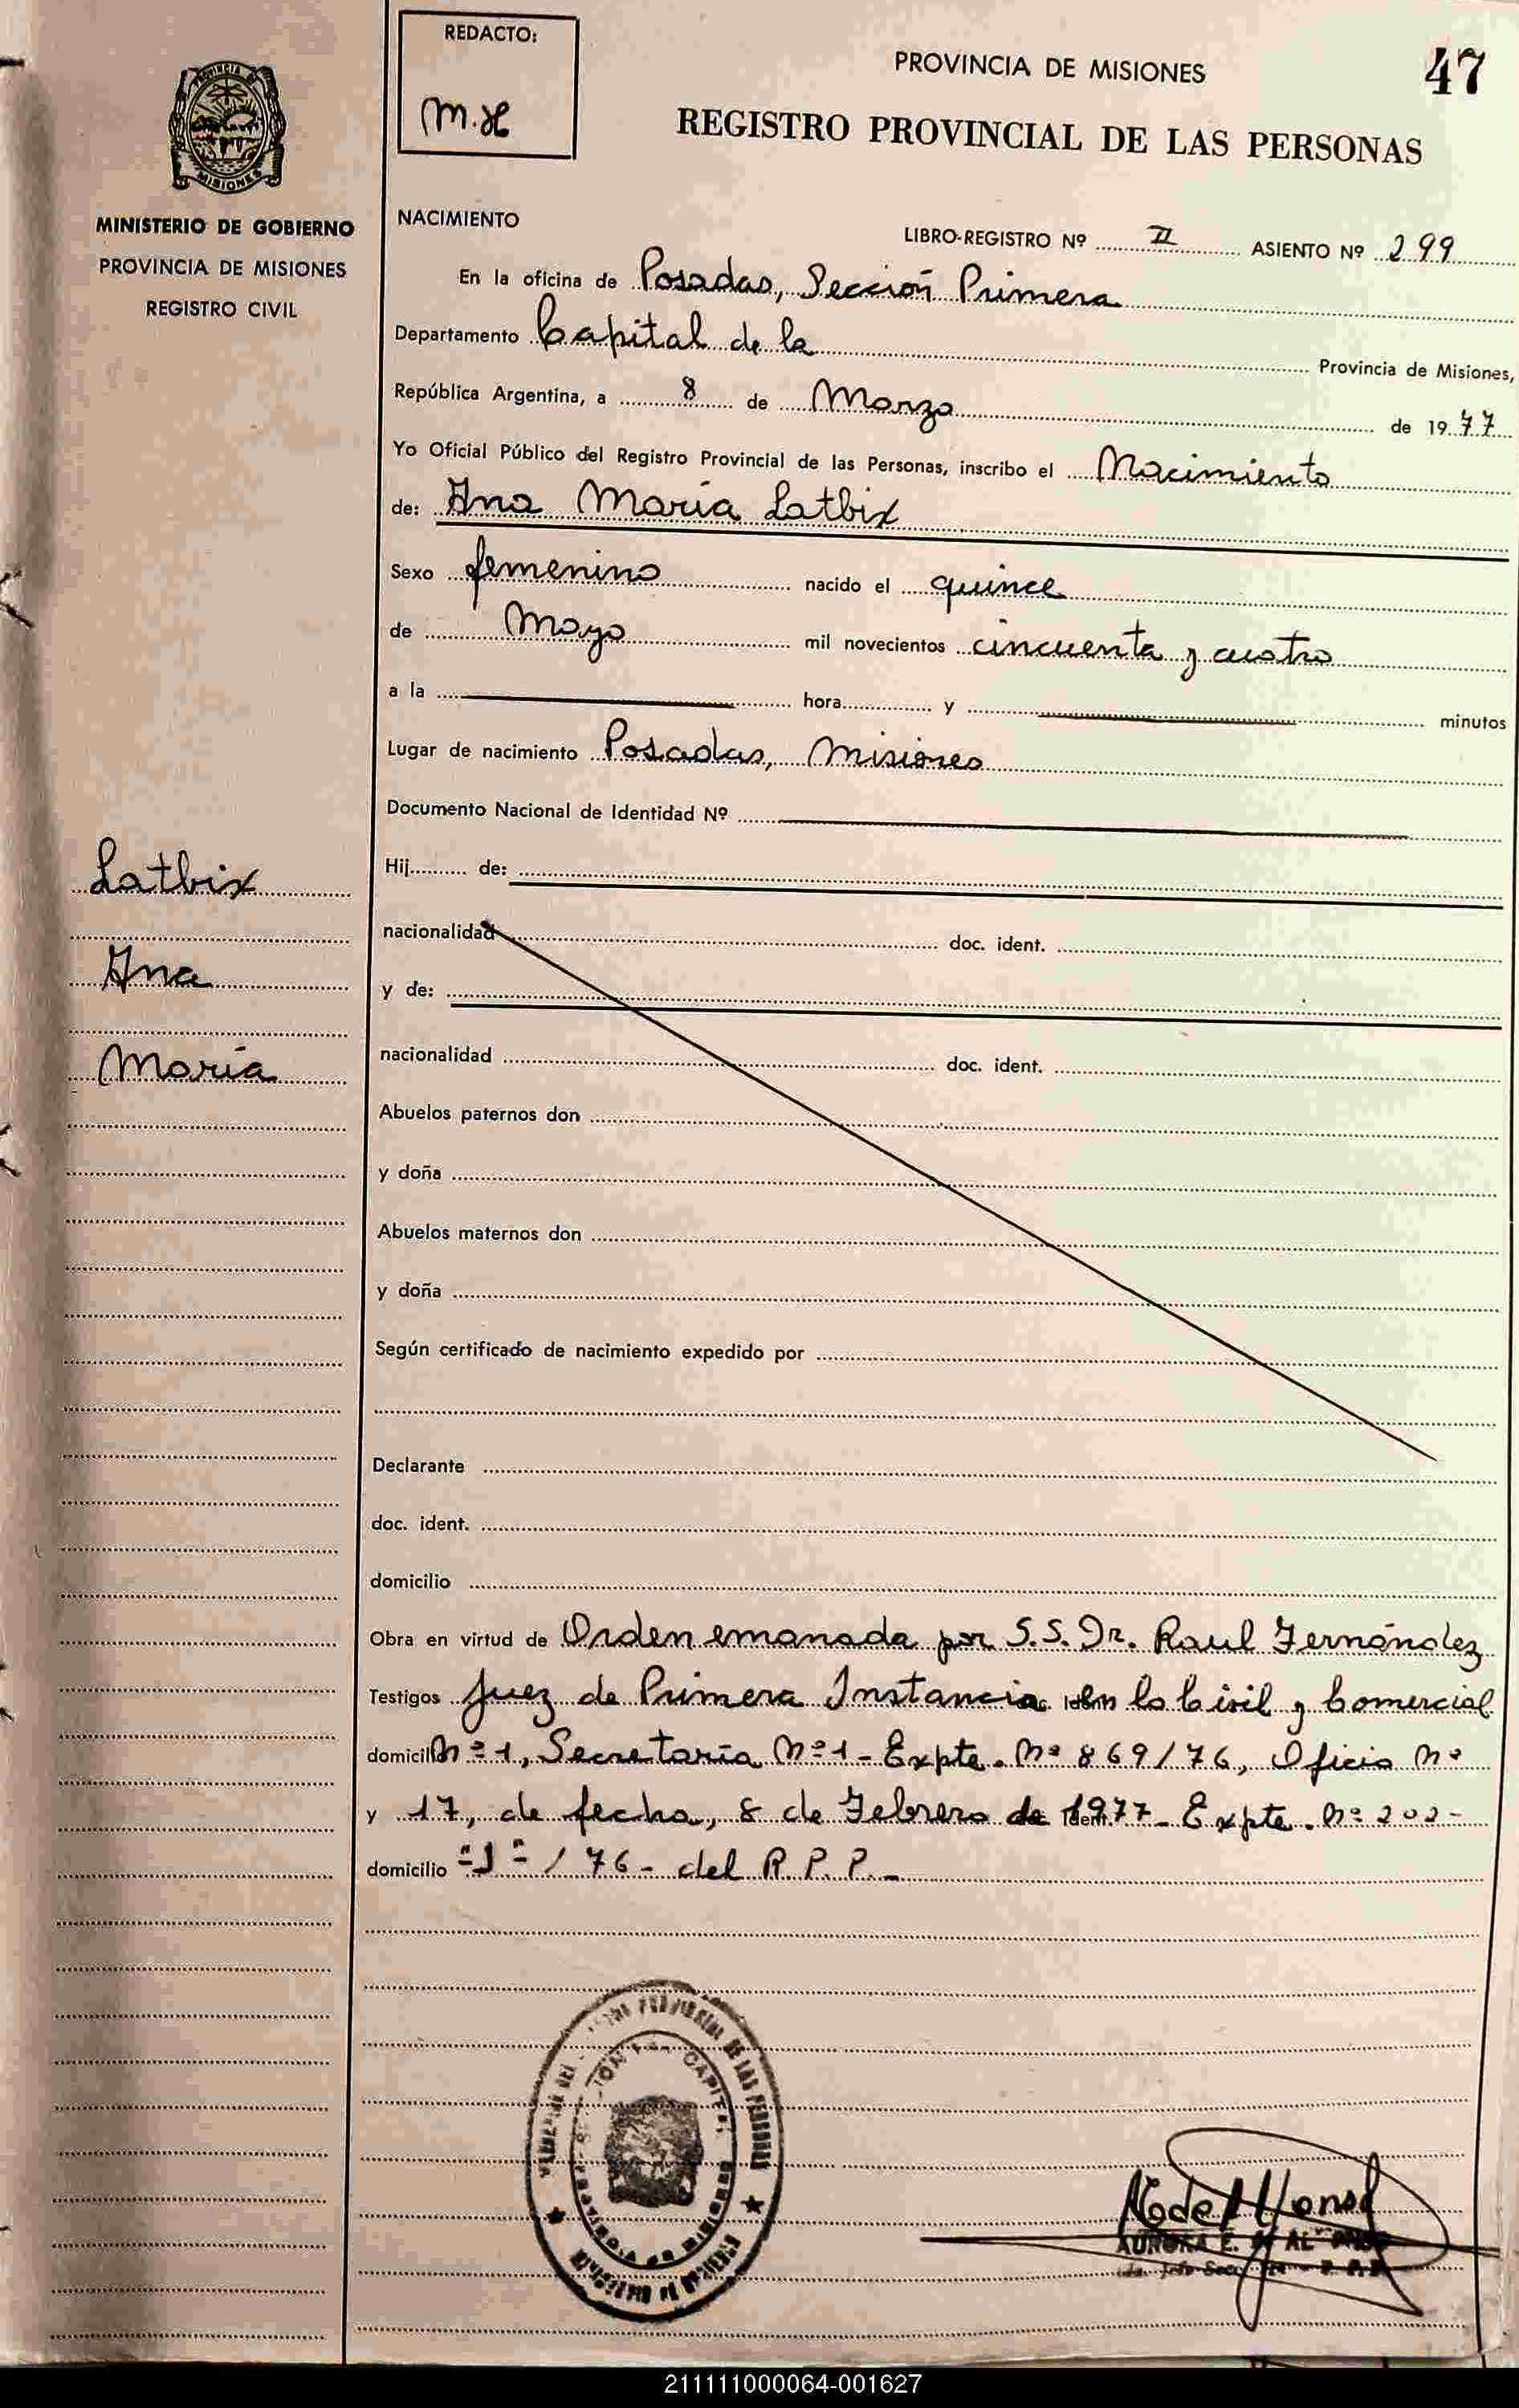 REDACTO:
M.H
PROVINCIA DE MISIONES
47
REGISTRO PROVINCIAL DE LAS PERSONAS
PROVINCIA DE
MISIONES
MINISTERIO DE GOBIERNO
PROVINCIA DE MISIONES
REGISTRO CIVIL
NACIMIENTO
LIBRO-REGISTRO Nº II ASIENTO Nº 299
En la oficina de Posadas, Sección Primera
Departamento Capital de la Provincia de Misiones,
República Argentina, a 8 de Marzo de 1977
Yo Oficial Público del Registro Provincial de las Personas, inscribo el Nacimiento
de: Ana María Latbix
Sexo femenino nacido el quince
de Mayo mil novecientos cincuenta y cuatro
a la hora y minutos
Lugar de nacimiento Posadas, Misiones
Documento Nacional de Identidad Nº
Latbix
Ana
María
Hij de:
nacionalidad doc. ident.
y de:
nacionalidad doc. ident.
Abuelos paternos don
y doña
Abuelos maternos don
y doña
Según certificado de nacimiento expedido por
Declarante
doc. ident.
domicilio
Obra en virtud de Orden emanada por S.S. Dr. Raul Fernández
Testigos Juez de Primera Instancia en lo Civil y Comercial
domicilio Nº 1, Secretaría Nº 1 - Expte. Nº 869/76, Oficio Nº
y 17, de fecha, 8 de Febrero de 1977 - Expte. Nº 202-
domicilio "J" / 76 - del R.P.P.
PROVINCIAL DE LAS PERSONAS
CAPITAL
AURORA E.
211111000064-001627